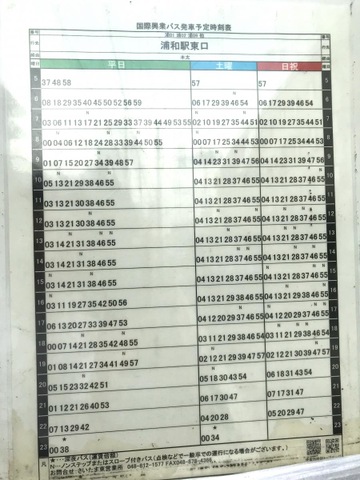 国際興業バス発車予定時刻表
浦和駅東口
平日 土曜 日祝
5 37 48 58 57 57
6 08 18 29 35 40 45 50 52 56 59 06 17 29 39 46 54 06 17 29 39 46 54
7 03 06 11 13 17 21 25 29 33 37 39 44 49 53 55 02 10 19 27 35 44 51 02 10 19 27 35 44 51
8 00 04 06 12 18 24 28 33 39 44 50 55 00 07 17 25 34 44 53 00 07 17 25 34 44 53
9 01 07 15 20 27 34 39 48 57 04 14 23 31 39 47 56 04 14 23 31 39 47 56
10 05 13 21 29 38 46 55 04 13 21 28 37 46 55 04 13 21 28 37 46 55
11 03 13 21 30 38 46 55 04 13 21 28 37 46 55 04 13 21 28 37 46 55
12 03 13 21 30 38 46 55 04 13 21 28 37 46 55 04 13 21 28 37 46 55
13 03 14 21 31 38 46 55 04 13 21 28 37 46 55 04 13 21 28 37 46 55
14 03 14 21 31 38 46 55 04 13 21 28 37 46 55 04 13 21 28 37 46 55
15 03 14 21 31 38 46 55 04 13 21 28 37 46 55 04 13 21 28 37 46 55
16 03 11 19 27 35 42 50 56 04 13 21 28 37 46 55 04 13 21 29 38 46 55
17 06 13 20 27 33 39 47 53 04 13 21 28 37 46 55 04 13 21 29 38 46 55
18 00 07 14 21 28 35 42 48 55 03 11 20 29 38 46 54 03 11 21 29 38 46 54
19 01 08 14 21 27 34 41 49 57 02 12 21 29 39 47 57 02 12 21 30 39 47 57
20 05 15 23 32 42 51 05 18 30 43 54 06 18 31 43 54
21 01 12 21 26 40 53 06 17 31 47 07 17 31 47
22 07 13 29 42 04 20 28 05 20 29 47
23 00 38 00 34
☆…深夜バス(運賃倍額)
N…ノンステップまたはスロープ付きバス(点検などで一般車での運行になる場合がございます。)
お問合せ さいたま東営業所 048-812-1577